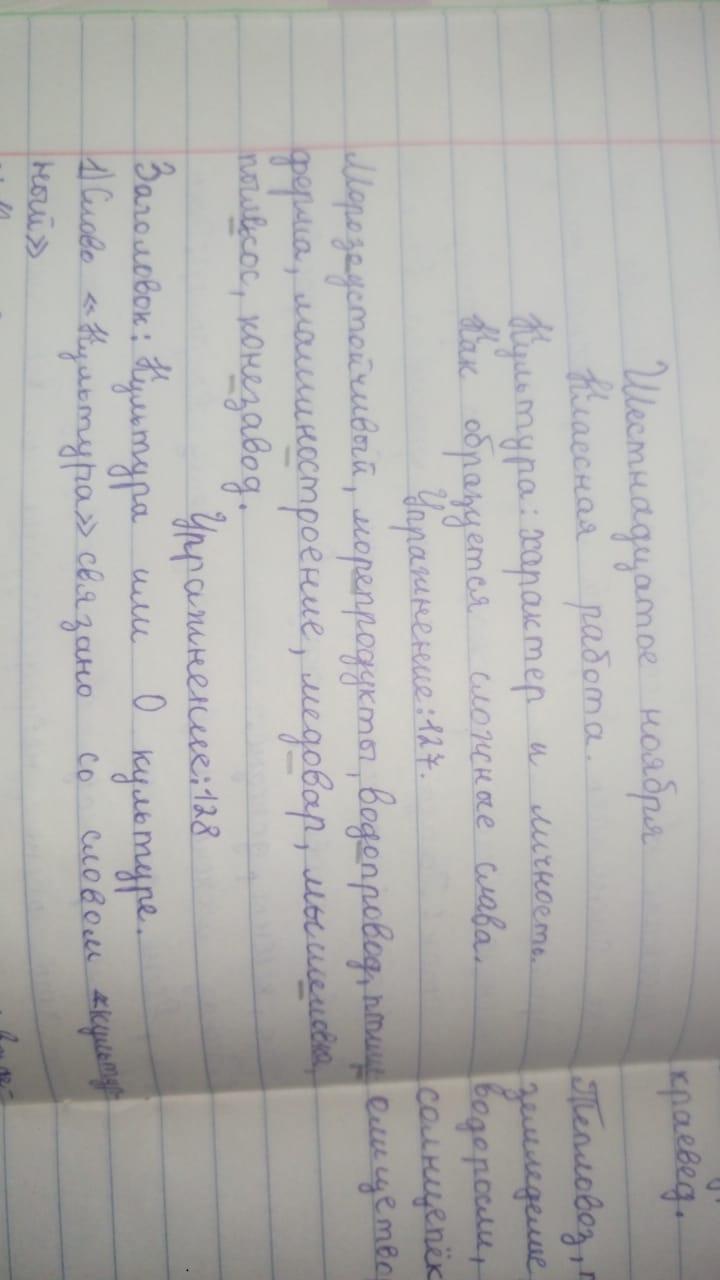 Шестнадцатое ноября
Классная работа.
Культура: характер и личность.
Как образуется сложные слава.
Упражнение: 127.
Морозоустойчивый, морепродукты, водопровод, птице
ферма, машиностроение, медовар, мышеловка,
пылесос, конезавод.
Упражнение: 128
Заголовок: Культура или О культуре.
1) Слово «Культура» связано со словом «культур
ный»
краевед.
Тепловоз,
земледелие
водоросли,
солнцепёк